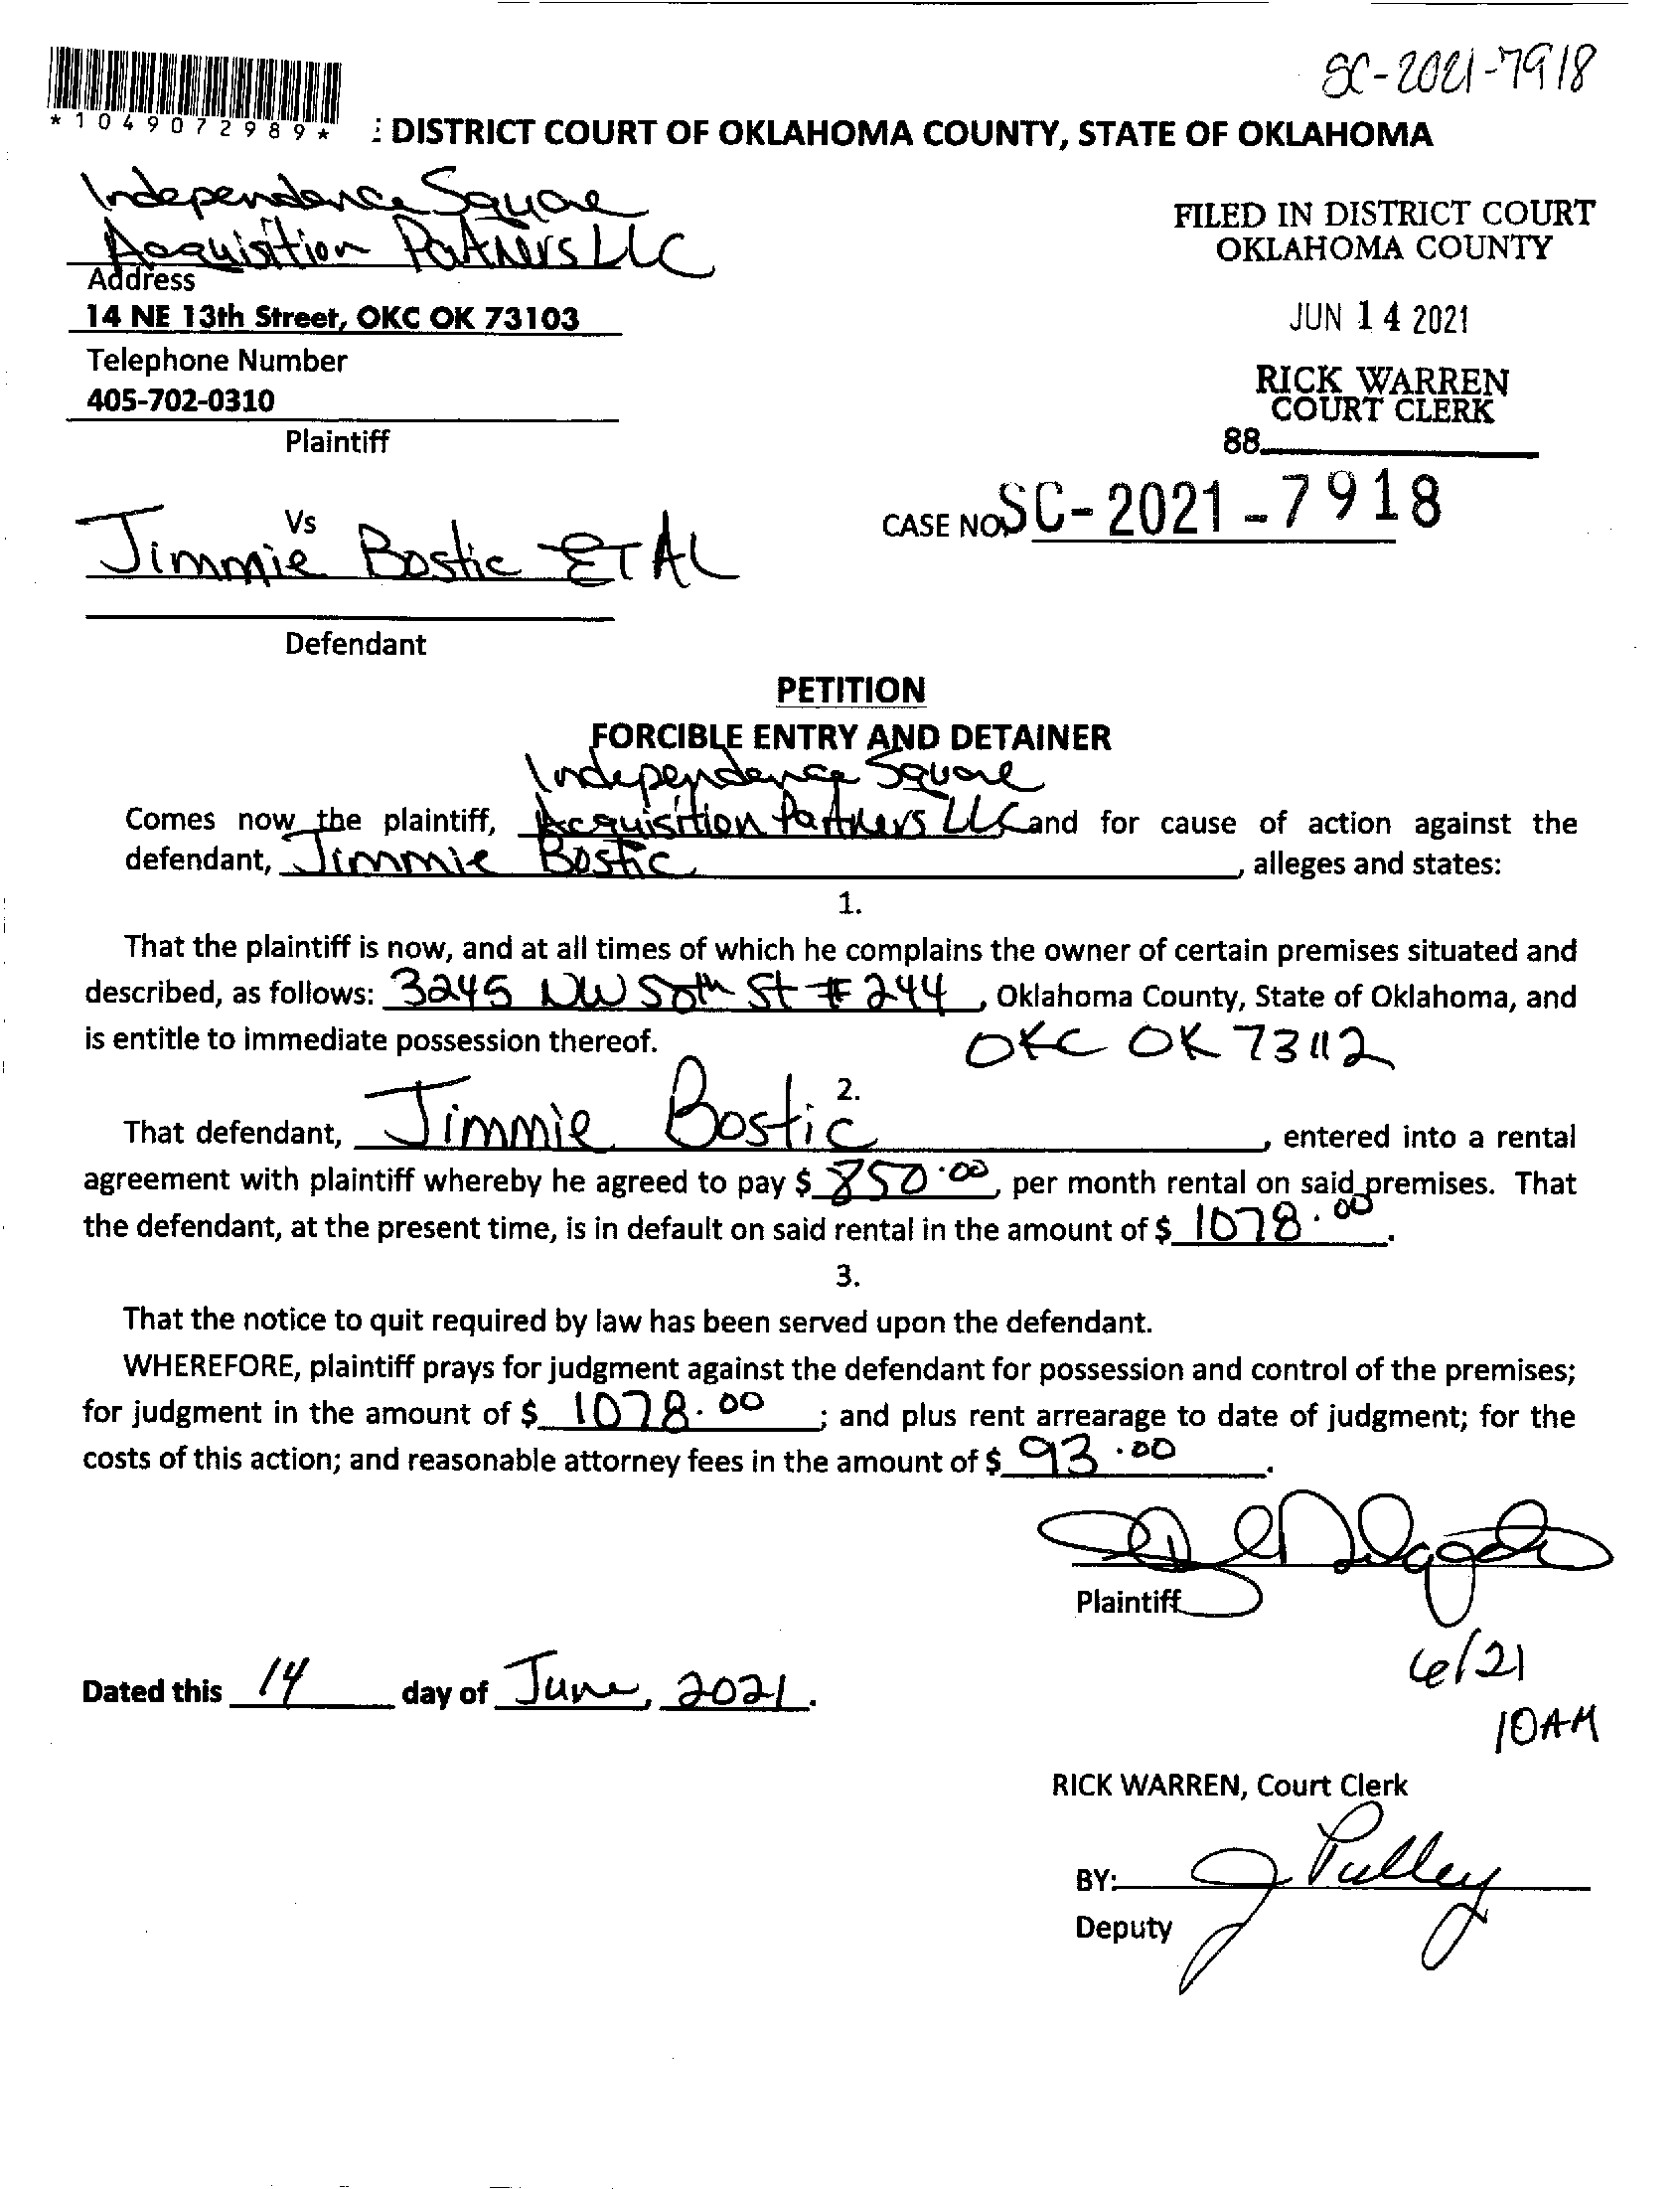 SC-2021-7918
*1049072989*
: DISTRICT COURT OF OKLAHOMA COUNTY, STATE OF OKLAHOMA
Independence Square
Acquisition Partners LLC
Address
14 NE 13th Street, OKC OK 73103
Telephone Number
405-702-0310
Plaintiff
FILED IN DISTRICT COURT
OKLAHOMA COUNTY
JUN 14 2021
RICK WARREN
COURT CLERK
88
CASE NO SC-2021-7918
Vs
Jimmie Bostic ET AL
Defendant
PETITION
FORCIBLE ENTRY AND DETAINER
Independence Square
Comes now the plaintiff, Acquisition Partners LLC and for cause of action against the
defendant, Jimmie Bostic, alleges and states:
1.
That the plaintiff is now, and at all times of which he complains the owner of certain premises situated and
described, as follows: 3245 NW 50th St # 244, Oklahoma County, State of Oklahoma, and
is entitle to immediate possession thereof. OKC OK 73112
2.
That defendant, Jimmie Bostic, entered into a rental
agreement with plaintiff whereby he agreed to pay $ 850.00, per month rental on said premises. That
the defendant, at the present time, is in default on said rental in the amount of $ 1078.00.
3.
That the notice to quit required by law has been served upon the defendant.
WHEREFORE, plaintiff prays for judgment against the defendant for possession and control of the premises;
for judgment in the amount of $ 1078.00; and plus rent arrearage to date of judgment; for the
costs of this action; and reasonable attorney fees in the amount of $ 93.00.
Plaintiff
6/21
10AM
Dated this 14 day of June, 2021.
RICK WARREN, Court Clerk
BY: J Pulley
Deputy